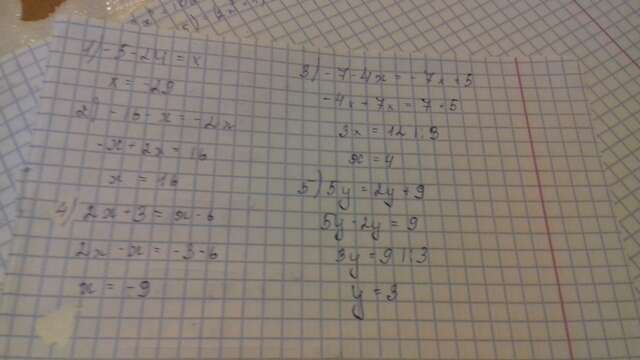 1) -5-24=x
x = -29
2) -16-x=-2x
-x+2x=16
x = 16
4) 2x+3=x-6
2x-x=-3-6
x = -9
3) -7-4x=-7x+5
-4x+7x=7+5
3x=12 |:3
x=4
5) 5y=2y+9
5y-2y=9
3y=9 |:3
y=3